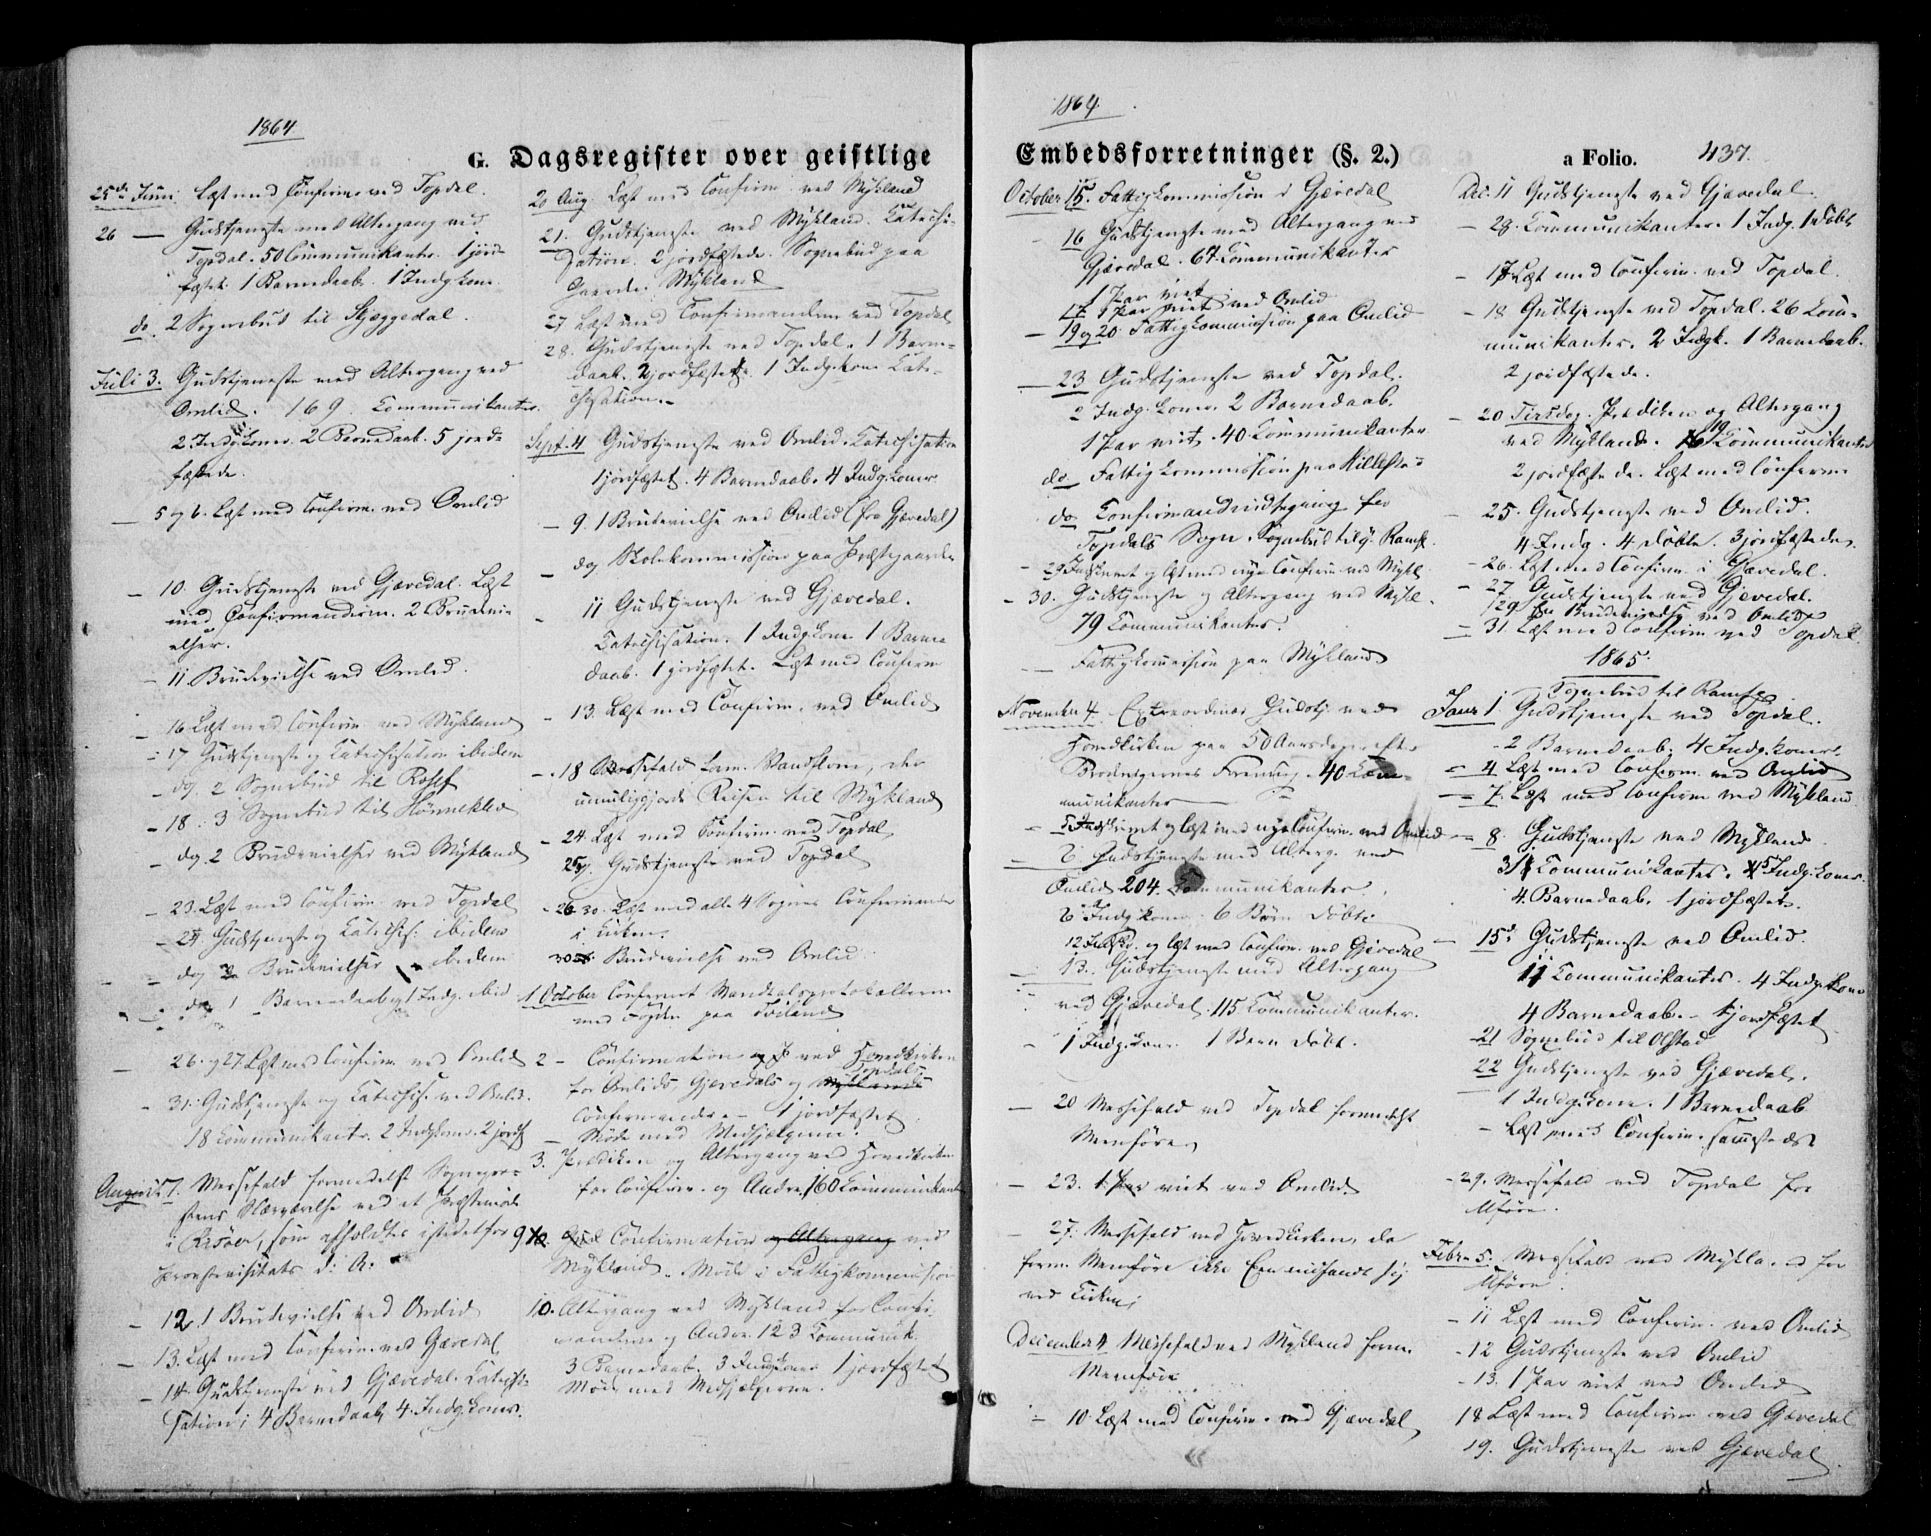 1864
G. Dagsregister over geistlige
25de Juni Læst med Confirm. ved Topdal.
26 — Gudstjeneste med Altergang ved
Topdal. 50 Communikanter. 1 jord-
fæstet. 1 Barnedaab. 1 Indg. Kone.
do. 2 Sognebud til Skjeggedal.
Juli 3. Gudstjeneste med Altergang ved
Omlid. 169. Communikanter.
2 Indg. Koner. 2 Barnedaab. 5 jord-
fæstede.
— 5 og 6. Læst med Confirm. ved Omlid
— 10. Gudstjeneste ved Gjævedal. Læst
med Confirmanderne. 2 Brudevi-
elser.
— 11 Brudevielse ved Omlid.
— 16 Læst med Confirm. ved Mykland
— 17 Gudstjeneste og Catechisation ibidem
— dg. 2 Sognebud til
— 18. 3 Sognebud til
— dg. 2 Brudevielser ved Mykland
— 23. Læst med Confirm. ved Topdal
— 24. Gudstjeneste og Catechis: ibidem
— dg 2 Brudevielser ibidem
— dg 1 Barnedaab og 1 Indg. ibid
— 26. og 27. Læst med Confirm. ved Omlid
— 31. Gudstjeneste og Catechis. ved Omlid.
18 Communikanter. 2 Indg. Koner. 2 jordf.
August 7. Messefald formedelst Sognepræ-
stens Nærværelse ved et Præstemøde
i Risøer, som afholdtes istedetfor
Provstevisitats d: A.
— 12. 1 Brudevielse ved Omlid
— 13. Læst med Confirm. ved Gjævedal
— 14. Gudstjeneste ved Gjævedal. Catechi-
sation; 4 Barnedaab, 4 Indg. Koner.
20 Aug. Læst med Confirm. ved Mykland
21. Gudstjeneste ved Mykland. Catechi-
sation. 2 jordfæstede. Sognebud paa
Mykland
27 Læst med Confirmanderne ved Topdal
28. Gudstjeneste ved Topdal. 1 Barne-
daab. 2 jordfæstede. 1 Indg. Kone Cate-
chisation.
Sept. 4 Gudstjeneste ved Omlid. Catechisation
1 jordfæstet. 4 Barnedaab. 4 Indg. Koner
— 9. 1 Brudevielse ved Omlid (fra Gjævedal)
— dg Skolekommission paa Præstegaarden
— 11 Gudstjeneste ved Gjævedal.
Catechisation. 1 Indg. Kone 1 Barne
daab. 1 jordfæstet. Læst med Confirm
— 13. Læst med Confirm. ved Omlid
— 18 Messefald Vandflom, der
umuliggjorde Reisen til Mykland
— 24. Læst med Confirm. ved Topdal
25. Gudstjeneste ved Topdal
— 26. 30. Læst med alle 4 Sognes Confirmander
i Kirken.
30. Brudevielse ved Omlid.
1 October Confereret Mandtalsprotokollerne
med Fogden paa
2 — Confirmation ved Hovedkirken
for Omlids, Gjævedals og Topdals
Confirmander. — 1 jordfæstet
Møde med Medhjælperne.
3. Prædiken og Altergang ved Hovedkirken
for Confirm. og Andre. 160 Communikanter
9. Confirmation og Altergang ved
Mykland. Møde i Fattigkommission
10. Altergang ved Mykland for Confir-
manderne og Andre. 123 Communik.
3 Barnedaab. 3 Indg. Koner 1 jordfæstet
Møde med Medhjælperne.
1864.
Embedsforretninger (§. 2.)
a Folio. 437.
October 15. Fattigkommission i Gjævedal
— 16 Gudstjeneste med Altergang ved
Gjævedal. 67 Communikanter
1 Par viet
17. 1 Par viet ved Omlid
— 19 og 20. Fattigkommission paa Omlid
— 23 Gudstjeneste ved Topdal.
2 Indg. Koner. 2 Barnedaab.
1 Par viet. 40 Communikanter
do Fattigkommission paa Hillestad
do Confirmandindtegning for
Topdals Sogn. Sognebud til g. Ramse.
— 29 Indskrevet og læst med nye Confirm. ved Mykl.
— 30. Gudstjeneste og Altergang ved Mykl.
79 Communikanter.
— Fattigkommission paa Mykland
November 4. Extraordinær Gudstj. ved
Hovedkirken paa 50 Aarsdagen efter
Broderigernes Forening. 40 Com-
munikanter
— 5 Indskrevet og læst med nye Confirm. ved Omlid
— 6. Gudstjeneste med Alterg. ved
Omlid 204. Communikanter.
6 Indg. Koner. 6 Børn døbte
12 Indskr. og læst med Confirm. ved Gjævedal
— 13. Gudstjeneste med Altergang
ved Gjævedal. 115 Communikanter.
— 1 Indg. Kone. 1 Barn døbt.
— 20 Messefald ved Topdal formedelst
Menføre
— 23. 1 Par viet ved Omlid
— 27. Messefald ved Hovedkirken, da
form. Menføre ikke Een indfandt sig
ved Kirken;
December 4 Messefald ved Mykland form.
Menføre
— 10. Læst med Confirm. ved Gjævedal
Dec. 11 Gudstjeneste ved Gjævedal.
— 28. Communikanter. 1 Indg. 1 Døbt
— 17. Læst med Confirm. ved Topdal.
— 18 Gudstjeneste ved Topdal. 26 Com-
munikanter. 2 Indgk. 1 Barnedaab.
2 jordfæstede.
— 20 Tirsdag. Prædiken og Altergang
ved Mykland. 19 Communikanter
2 jordfæstede. Læst med Confirm.
— 25. Gudstjeneste ved Omlid.
4 Indg. 4 døbte. 3 jordfæstede.
— 26. Læst med Confirm. i Gjævedal.
— 27. Gudstjeneste ved Gjævedal.
29 En Brudevielse ved Omlid
— 31. Læst med Confirm ved Topdal.
1865.
Sognebud til Ramse
Janr 1. Gudstjeneste ved Topdal.
— 2 Barnedaab. 4 Indg. Koner
— 4 Læst med Confirm. ved Omlid
— 7. Læst med Confirm ved Mykland
— 8. Gudstjeneste ved Mykland.
31 Communikanter. 5 Indg. Koner.
4. Barnedaab. 1 jordfæstet.
— 15de Gudstjeneste ved Omlid.
11 Communikanter. 4 Indg. Koner
4 Barnedaab. 1 jordfæstet
21 Sognebud til Olstad
22 Gudstjeneste ved Gjævedal.
1 Indg. Kone. 1 Barnedaab
— Læst med Confirm. sammesteds
— 29. Messefald ved Topdal for
Uføre.
Febr. 5. Messefald ved Mykland for
Uføre.
— 11 Læst med Confirm. ved Omlid
— 12 Gudstjeneste ved Omlid
— 13. 1 Par viet ved Omlid
18 Læst med Confirm ved Gjævedal
19. Gudstjeneste ved Gjævedal.